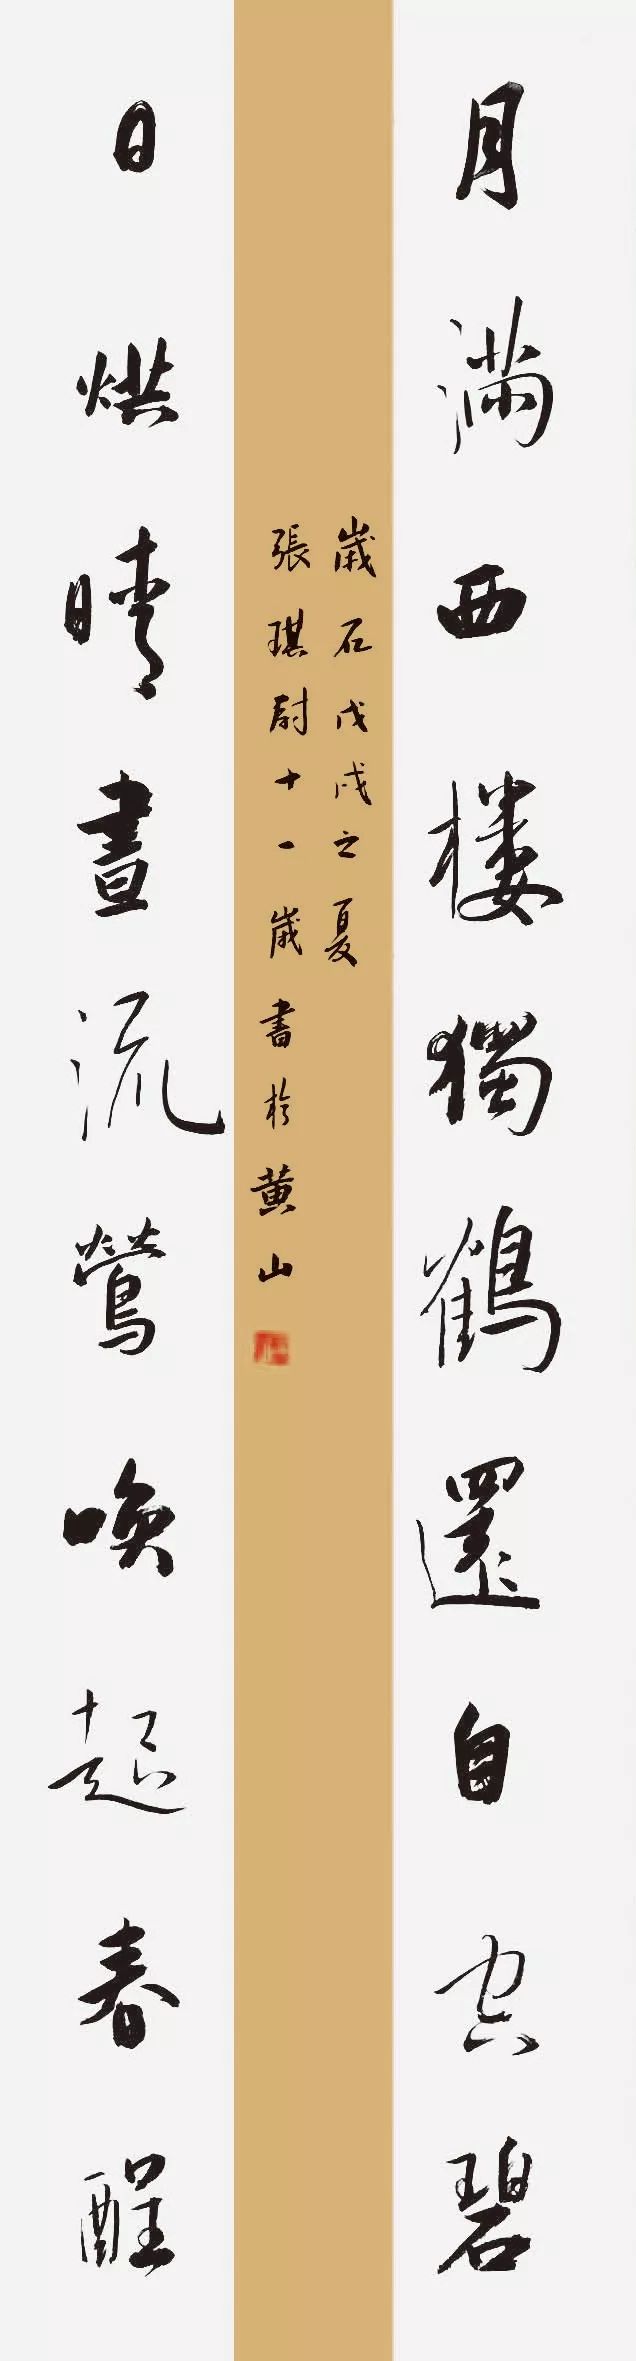 月滿西楼獨鶴還自空碧
日烘晴晝流鶯喚起春酲
歲在戊戌之夏
張琪尉十一歲書於黄山